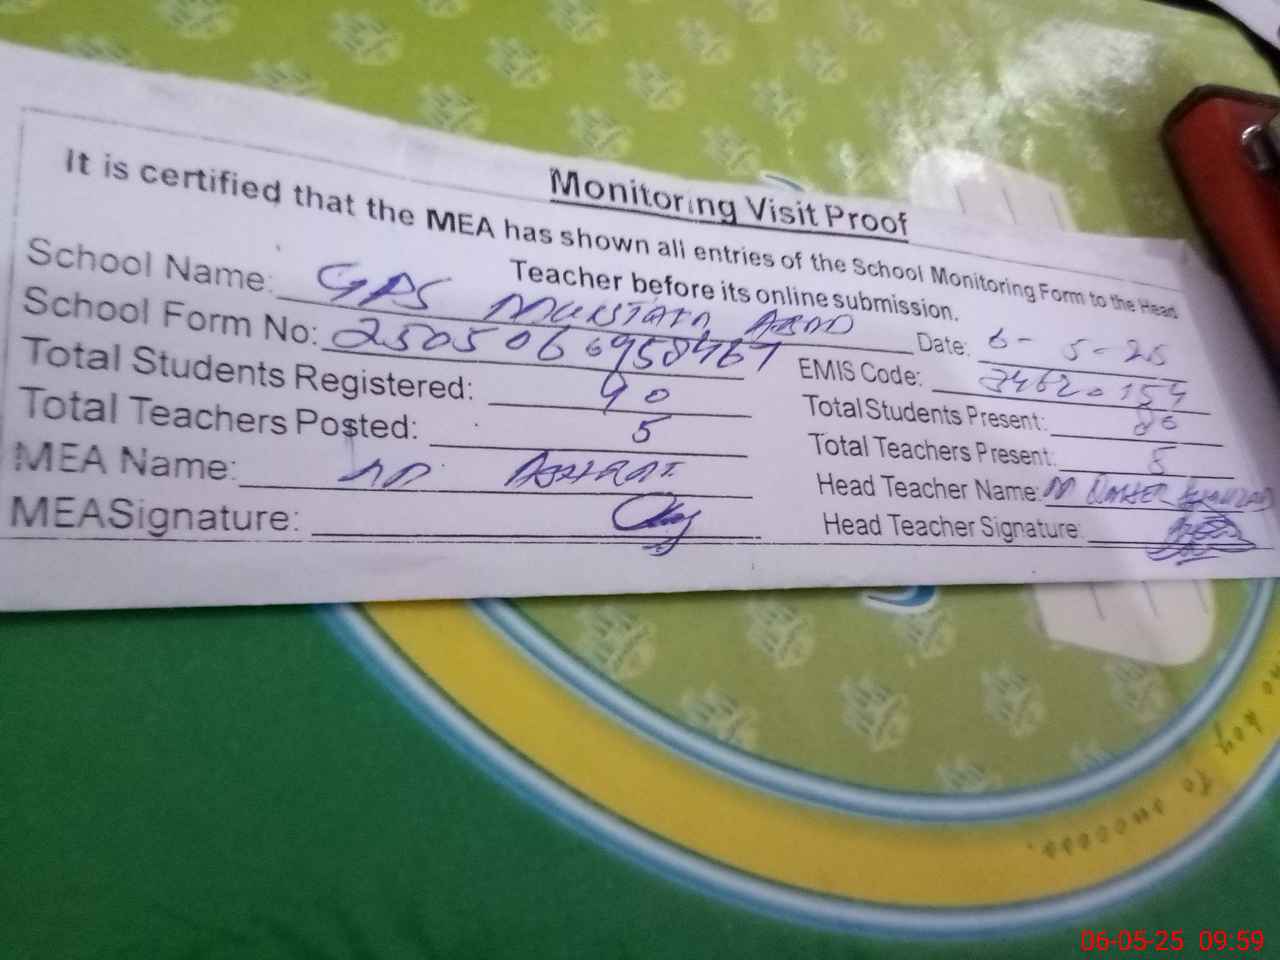 Monitoring Visit Proof
It is certified that the MEA has shown all entries of the School Monitoring Form to the Head
Teacher before its online submission.
School Name: GPS MUKSTAFA ABAD Date: 6-5-25
School Form No: EMIS Code:
Total Students Registered: 90 Total Students Present: 80
Total Teachers Posted: 5 Total Teachers Present: 5
MEA Name: Head Teacher Name: M
MEA Signature: Head Teacher Signature:
key to success.
06-05-25 09:59